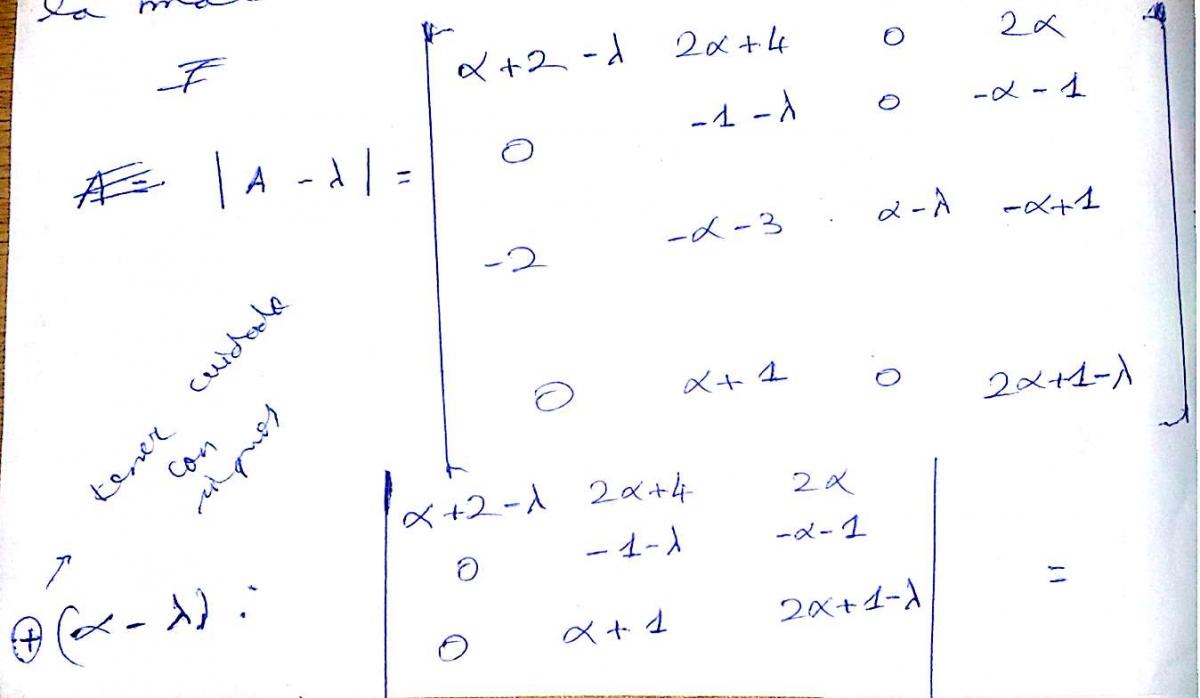 la
|A - λ| =
α+2-λ 2α+4 0 2α
0 -1-λ 0 -α-1
-2 -α-3 α-λ -α+1
0 α+1 0 2α+1-λ
tener cuidado
con
signos
⊕ (α-λ) ·
α+2-λ 2α+4 2α
0 -1-λ -α-1
0 α+1 2α+1-λ
=